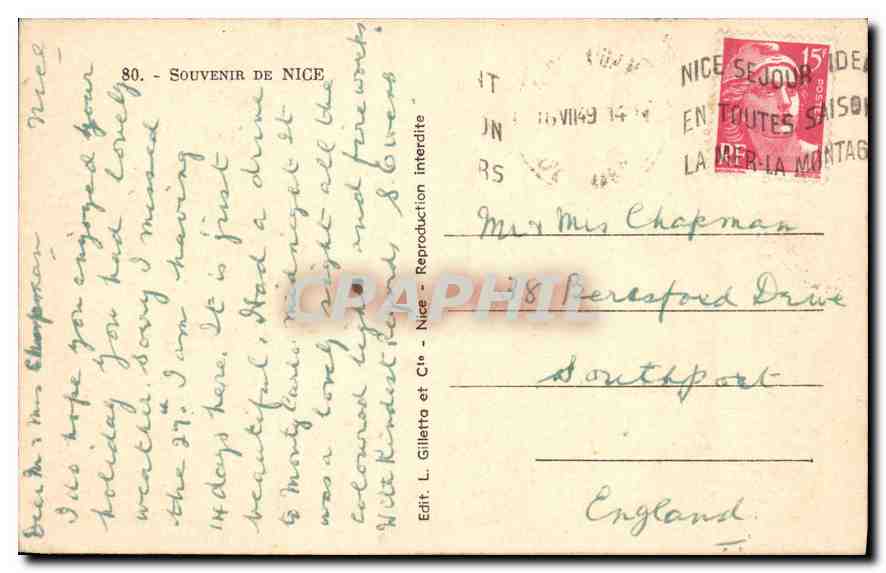 80. - SOUVENIR DE NICE
Nice
Dear Mr & Mrs Chapman
I do hope you enjoyed your
holiday you had lovely
weather. Sorry I missed
the 27". I am having
14 days here. It is just
beautiful. Had a drive
to Monty Carlo midnight it
was a lovely sight all the
coloured lights and fireworks.
With Kindest Regards S Owens
Edit. L. Gilletta et Cie - Nice - Reproduction interdite
VII 49
NICE SEJOUR IDEA
EN TOUTES SAISON
LA MER-LA MONTAG
15F
POSTES
RF
Mr & Mrs Chapman
78 Beresford Drive
Southport
England.
CPAPHIL